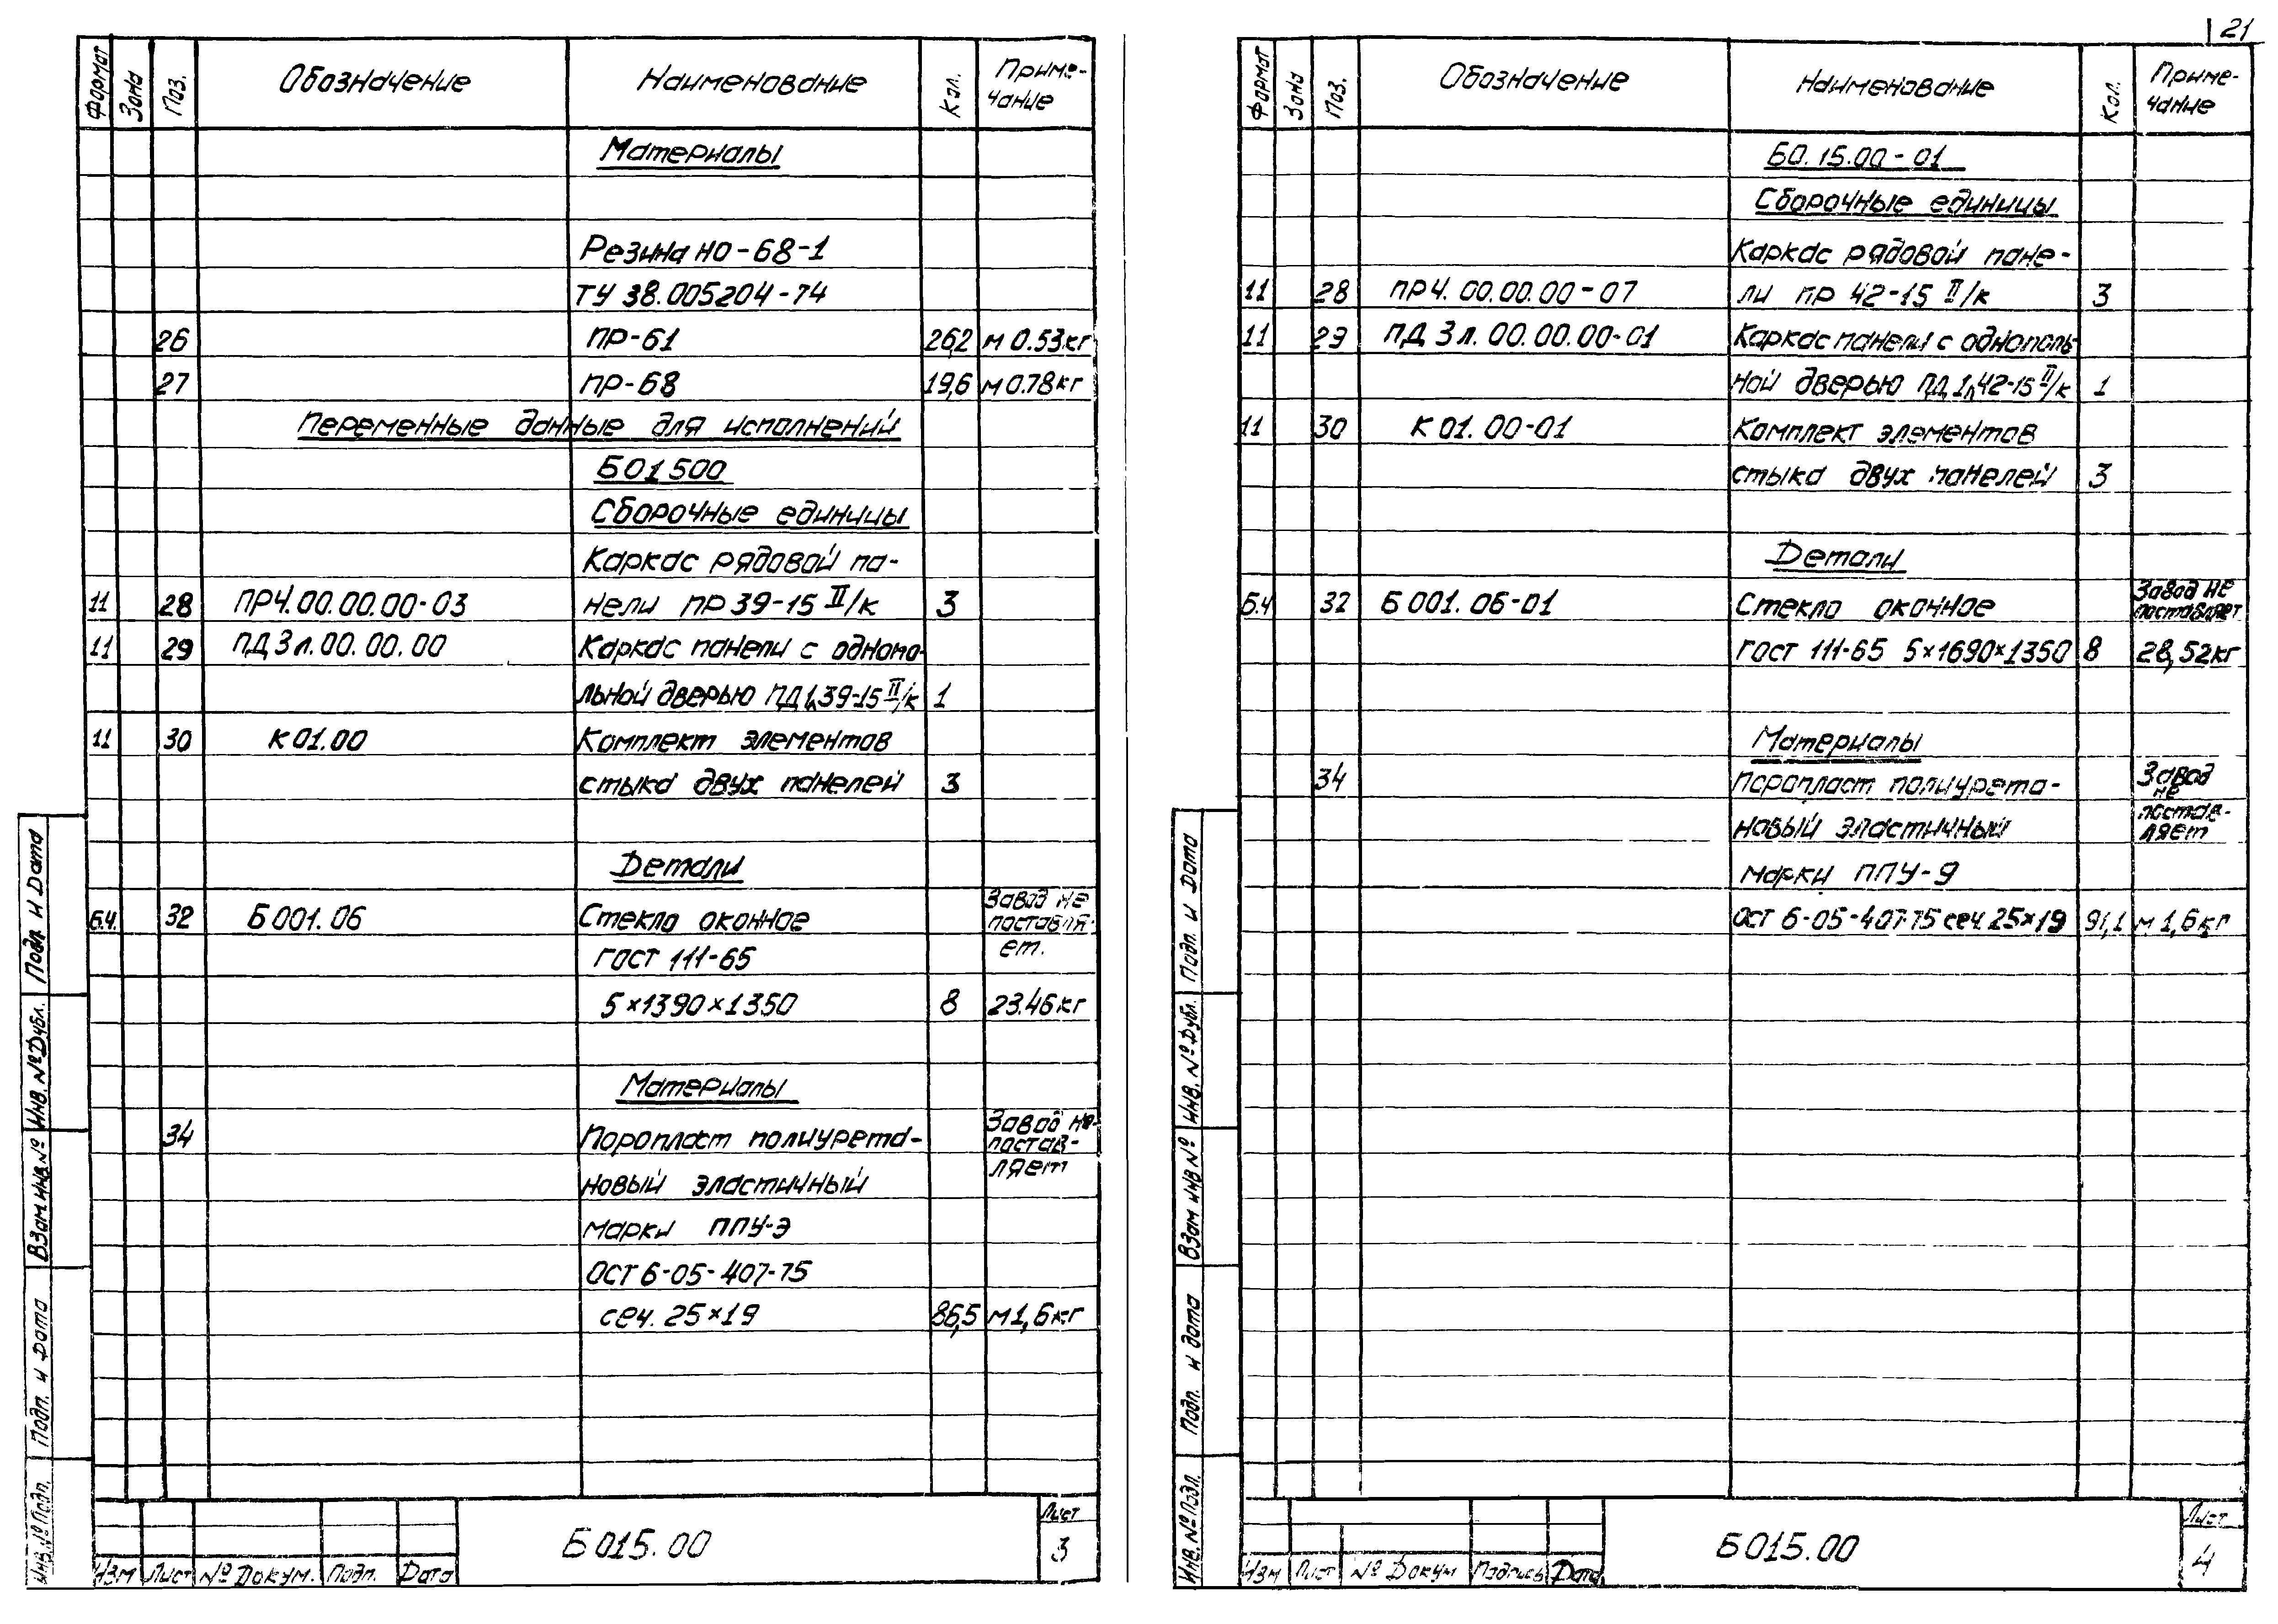 21
Формат Зона Поз. Обозначение Наименование Кол. Приме-
чание
Материалы
Резина НО-68-1
ТУ 38.005204-74
26 ПР-61 26,2 м 0.53кг
27 ПР-68 19,6 м 0.78кг
Переменные данные для исполнений
Б01500
Сборочные единицы
Каркас рядовой па-
11 28 ПР4.00.00.00-03 нели ПР 39-15 II/к 3
11 29 ПД3л.00.00.00 Каркас панели с однопо-
льной дверью ПД1л39-15 II/к 1
11 30 К01.00 Комплект элементов
стыка двух панелей 3
Детали
Б.4. 32 Б001.06 Стекло оконное Завод не
поставля-
ет.
ГОСТ 111-65
5×1390×1350 8 23.46кг
Материалы
34 Поропласт полиурета- Завод не
постав-
ляет
новый эластичный
марки ППУ-Э
ОСТ 6-05-407-75
сеч. 25×19 86,5 м1,6кг
Подп. и Дата
Инв. № Дубл.
Взам. инв. №
Подп. и дата
Инв. № Подл.
Изм Лист № Докум. Подп. Дата
Б015.00
Лист
3
Формат Зона Поз. Обозначение Наименование Кол. Приме-
чание
Б0.15.00-01
Сборочные единицы
Каркас рядовой пане-
11 28 ПР4.00.00.00-07 ли ПР 42-15 II/к 3
11 29 ПД3л.00.00.00-01 Каркас панели с однополь-
ной дверью ПД1л42-15 II/к 1
11 30 К01.00-01 Комплект элементов
стыка двух панелей 3
Детали
Б.4 32 Б001.06-01 Стекло оконное Завод не
поставляет
ГОСТ 111-65 5×1690×1350 8 28,52кг
Материалы
34 Поропласт полиурета- Завод
не
постав-
ляет
новый эластичный
марки ППУ-Э
ОСТ 6-05-407-75 сеч. 25×19 91,1 м 1,6кг
Подп. и Дата
Инв. № Дубл.
Взам инв №
Подп. и дата
Инв. № Подл.
Изм Лист № Докум Подпись Дата
Б015.00
Лист
4